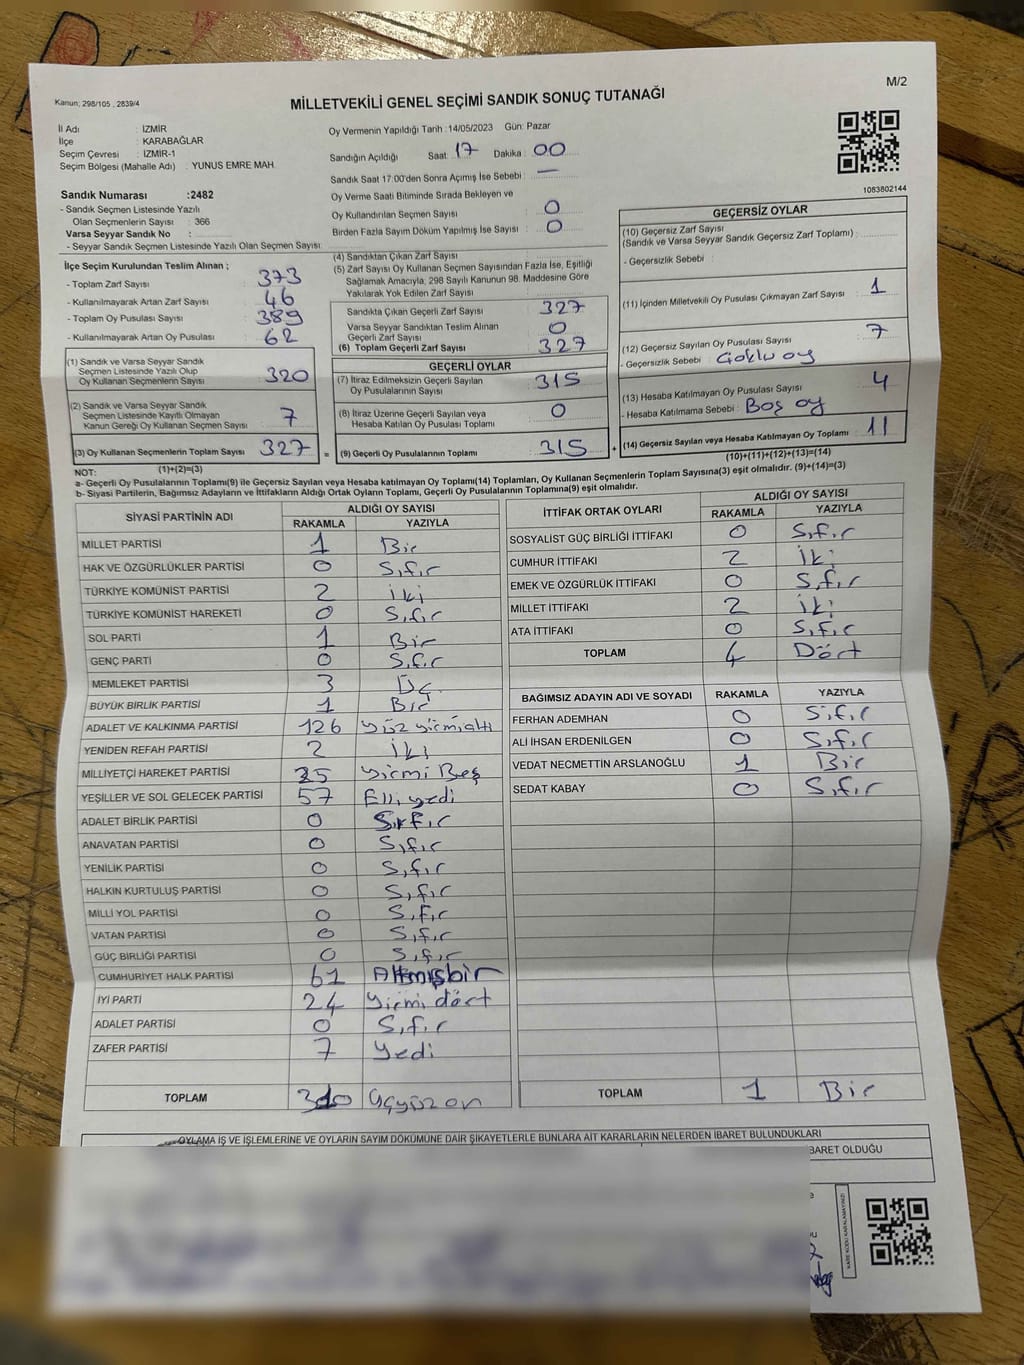 M/2
Kanun; 298/105 , 2839/4
MİLLETVEKİLİ GENEL SEÇİMİ SANDIK SONUÇ TUTANAĞI
İl Adı : İZMİR
İlçe : KARABAĞLAR
Seçim Çevresi : İZMİR-1
Seçim Bölgesi (Mahalle Adı) : YUNUS EMRE MAH.
Sandık Numarası :2482
- Sandık Seçmen Listesinde Yazılı
Olan Seçmenlerin Sayısı : 366
Varsa Seyyar Sandık No :
- Seyyar Sandık Seçmen Listesinde Yazılı Olan Seçmen Sayısı:
Oy Vermenin Yapıldığı Tarih :14/05/2023 Gün: Pazar
Sandığın Açıldığı Saat: 17 Dakika : 00
Sandık Saat 17:00'den Sonra Açımış İse Sebebi : —
Oy Verme Saati Bitiminde Sırada Bekleyen ve
Oy Kullandırılan Seçmen Sayısı : 0
Birden Fazla Sayım Döküm Yapılmış İse Sayısı : 0
1083802144
İlçe Seçim Kurulundan Teslim Alınan ;
- Toplam Zarf Sayısı : 373
- Kullanılmayarak Artan Zarf Sayısı : 46
- Toplam Oy Pusulası Sayısı : 389
- Kullanılmayarak Artan Oy Pusulası : 62
(1) Sandık ve Varsa Seyyar Sandık
Seçmen Listesinde Yazılı Olup
Oy Kullanan Seçmenlerin Sayısı : 320
(2) Sandık ve Varsa Seyyar Sandık
Seçmen Listesinde Kayıtlı Olmayan
Kanun Gereği Oy Kullanan Seçmen Sayısı : 7
(3) Oy Kullanan Seçmenlerin Toplam Sayısı : 327 =
(1)+(2)=(3)
(4) Sandıktan Çıkan Zarf Sayısı :
(5) Zarf Sayısı Oy Kullanan Seçmen Sayısından Fazla İse, Eşitliği
Sağlamak Amacıyla, 298 Sayılı Kanunun 98. Maddesine Göre
Yakılarak Yok Edilen Zarf Sayısı :
Sandıkta Çıkan Geçerli Zarf Sayısı : 327
Varsa Seyyar Sandıktan Teslim Alınan
Geçerli Zarf Sayısı : 0
(6) Toplam Geçerli Zarf Sayısı : 327
GEÇERLİ OYLAR
(7) İtiraz Edilmeksizin Geçerli Sayılan
Oy Pusulalarının Sayısı : 315
(8) İtiraz Üzerine Geçerli Sayılan veya
Hesaba Katılan Oy Pusulası Toplamı : 0
(9) Geçerli Oy Pusulalarının Toplamı : 315 +
GEÇERSİZ OYLAR
(10) Geçersiz Zarf Sayısı
(Sandık ve Varsa Seyyar Sandık Geçersiz Zarf Toplamı) :
- Geçersizlik Sebebi :
(11) İçinden Milletvekili Oy Pusulası Çıkmayan Zarf Sayısı : 1
(12) Geçersiz Sayılan Oy Pusulası Sayısı : 7
- Geçersizlik Sebebi : Çoklu oy
(13) Hesaba Katılmayan Oy Pusulası Sayısı : 4
- Hesaba Katılmama Sebebi : Boş oy
(14) Geçersiz Sayılan veya Hesaba Katılmayan Oy Toplamı : 11
(10)+(11)+(12)+(13)=(14)
NOT:
a- Geçerli Oy Pusulalarının Toplamı(9) ile Geçersiz Sayılan veya Hesaba katılmayan Oy Toplamı(14) Toplamları, Oy Kullanan Seçmenlerin Toplam Sayısına(3) eşit olmalıdır. (9)+(14)=(3)
b- Siyasi Partilerin, Bağımsız Adayların ve İttifakların Aldığı Ortak Oyların Toplamı, Geçerli Oy Pusulalarının Toplamına(9) eşit olmalıdır.
SİYASİ PARTİNİN ADI ALDIĞI OY SAYISI
RAKAMLA YAZIYLA
MİLLET PARTİSİ 1 Bir
HAK VE ÖZGÜRLÜKLER PARTİSİ 0 Sıfır
TÜRKİYE KOMÜNİST PARTİSİ 2 İki
TÜRKİYE KOMÜNİST HAREKETİ 0 Sıfır
SOL PARTİ 1 Bir
GENÇ PARTİ 0 Sıfır
MEMLEKET PARTİSİ 3 Üç
BÜYÜK BİRLİK PARTİSİ 1 Bir
ADALET VE KALKINMA PARTİSİ 126 yüz yirmi altı
YENİDEN REFAH PARTİSİ 2 İki
MİLLİYETÇİ HAREKET PARTİSİ 25 yirmi Beş
YEŞİLLER VE SOL GELECEK PARTİSİ 57 Elli yedi
ADALET BİRLİK PARTİSİ 0 Sıfır
ANAVATAN PARTİSİ 0 Sıfır
YENİLİK PARTİSİ 0 Sıfır
HALKIN KURTULUŞ PARTİSİ 0 Sıfır
MİLLİ YOL PARTİSİ 0 Sıfır
VATAN PARTİSİ 0 Sıfır
GÜÇ BİRLİĞİ PARTİSİ 0 Sıfır
CUMHURİYET HALK PARTİSİ 61 Altmışbir
İYİ PARTİ 24 yirmi dört
ADALET PARTİSİ 0 Sıfır
ZAFER PARTİSİ 7 yedi
TOPLAM 310 üçyüzon
İTTİFAK ORTAK OYLARI ALDIĞI OY SAYISI
RAKAMLA YAZIYLA
SOSYALİST GÜÇ BİRLİĞİ İTTİFAKI 0 Sıfır
CUMHUR İTTİFAKI 2 İki
EMEK VE ÖZGÜRLÜK İTTİFAKI 0 Sıfır
MİLLET İTTİFAKI 2 İki
ATA İTTİFAKI 0 Sıfır
TOPLAM 4 Dört
BAĞIMSIZ ADAYIN ADI VE SOYADI RAKAMLA YAZIYLA
FERHAN ADEMHAN 0 Sıfır
ALİ İHSAN ERDENİLGEN 0 Sıfır
VEDAT NECMETTİN ARSLANOĞLU 1 Bir
SEDAT KABAY 0 Sıfır
TOPLAM 1 Bir
OYLAMA İŞ VE İŞLEMLERİNE VE OYLARIN SAYIM DÖKÜMÜNE DAİR ŞİKAYETLERLE BUNLARA AİT KARARLARIN NELERDEN İBARET BULUNDUKLARI
BARET OLDUĞU
KARE KODU KARALAMAYINIZ!